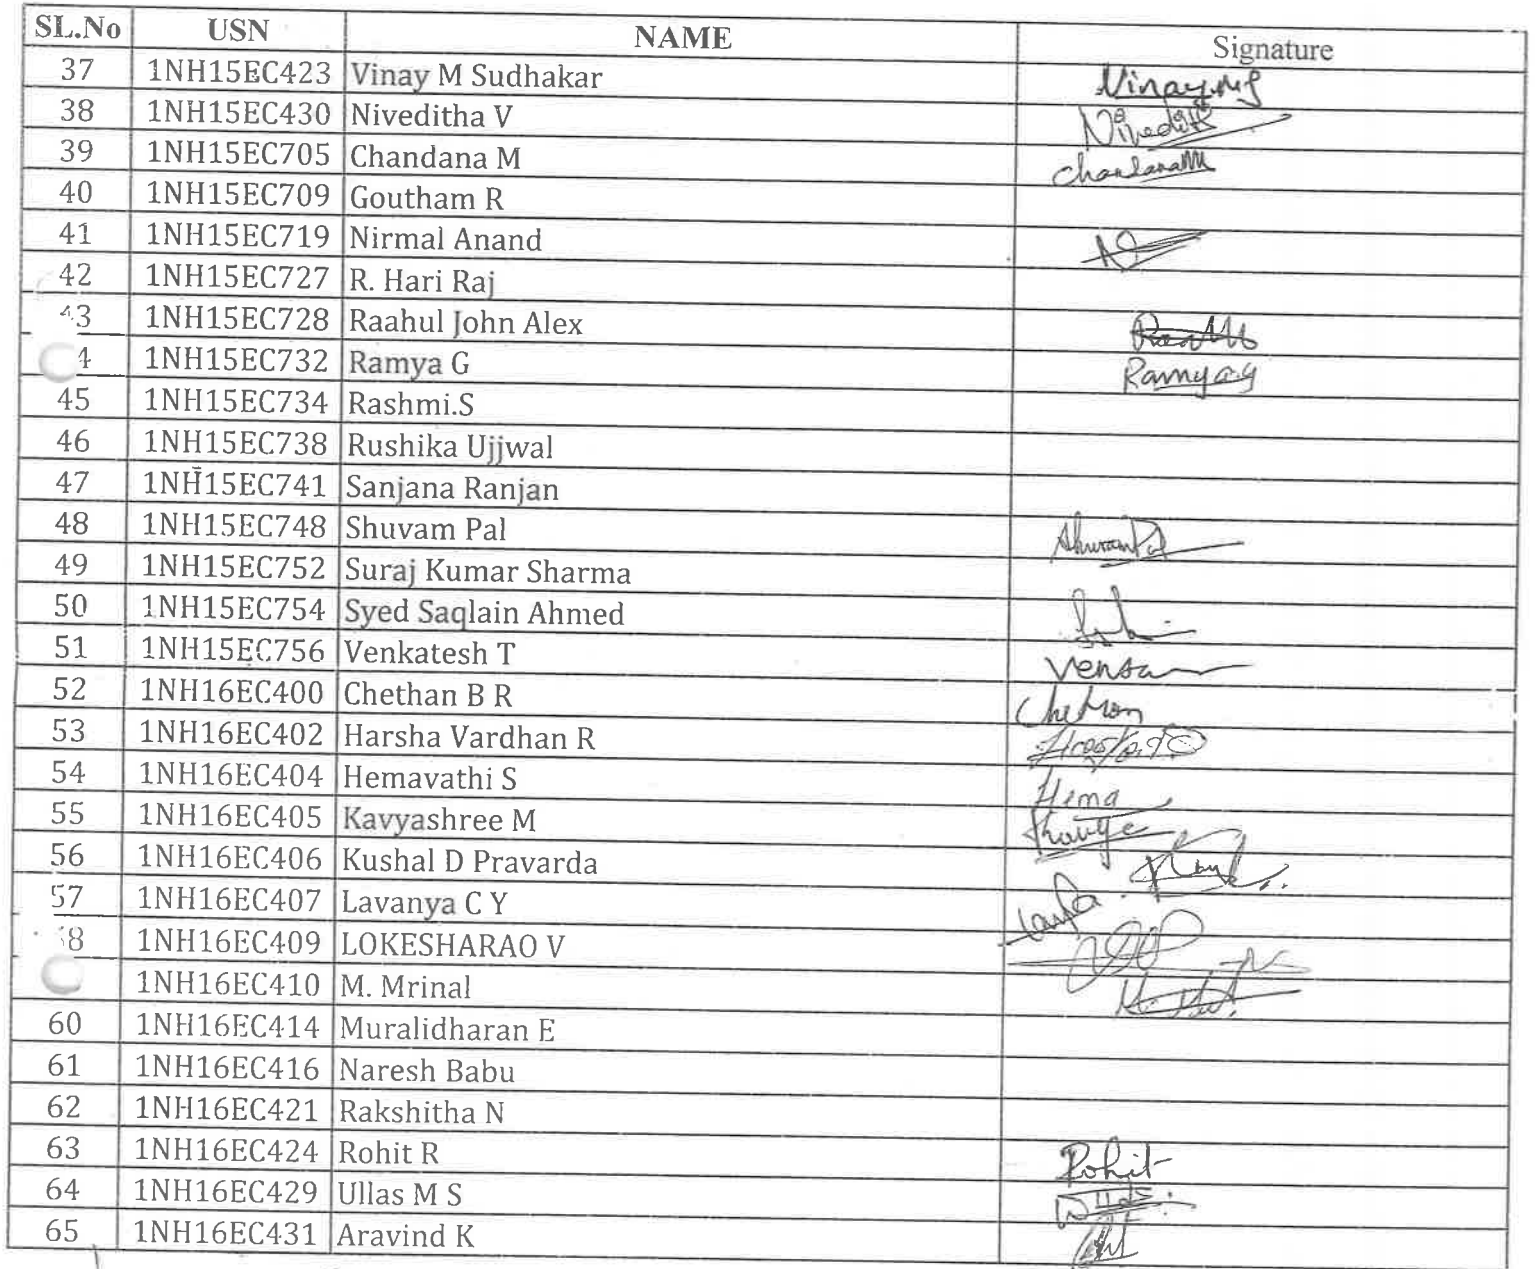 SL.No USN NAME Signature
37 1NH15EC423 Vinay M Sudhakar Vinay.M.S
38 1NH15EC430 Niveditha V
39 1NH15EC705 Chandana M ChandanaM
40 1NH15EC709 Goutham R
41 1NH15EC719 Nirmal Anand
42 1NH15EC727 R. Hari Raj
43 1NH15EC728 Raahul John Alex
4 1NH15EC732 Ramya G Ramya.G
45 1NH15EC734 Rashmi.S
46 1NH15EC738 Rushika Ujjwal
47 1NH15EC741 Sanjana Ranjan
48 1NH15EC748 Shuvam Pal ShuvamPal
49 1NH15EC752 Suraj Kumar Sharma
50 1NH15EC754 Syed Saqlain Ahmed
51 1NH15EC756 Venkatesh T
52 1NH16EC400 Chethan B R Chethan
53 1NH16EC402 Harsha Vardhan R
54 1NH16EC404 Hemavathi S Hema
55 1NH16EC405 Kavyashree M
56 1NH16EC406 Kushal D Pravarda
57 1NH16EC407 Lavanya C Y
58 1NH16EC409 LOKESHARAO V
1NH16EC410 M. Mrinal
60 1NH16EC414 Muralidharan E
61 1NH16EC416 Naresh Babu
62 1NH16EC421 Rakshitha N
63 1NH16EC424 Rohit R Rohit
64 1NH16EC429 Ullas M S
65 1NH16EC431 Aravind K